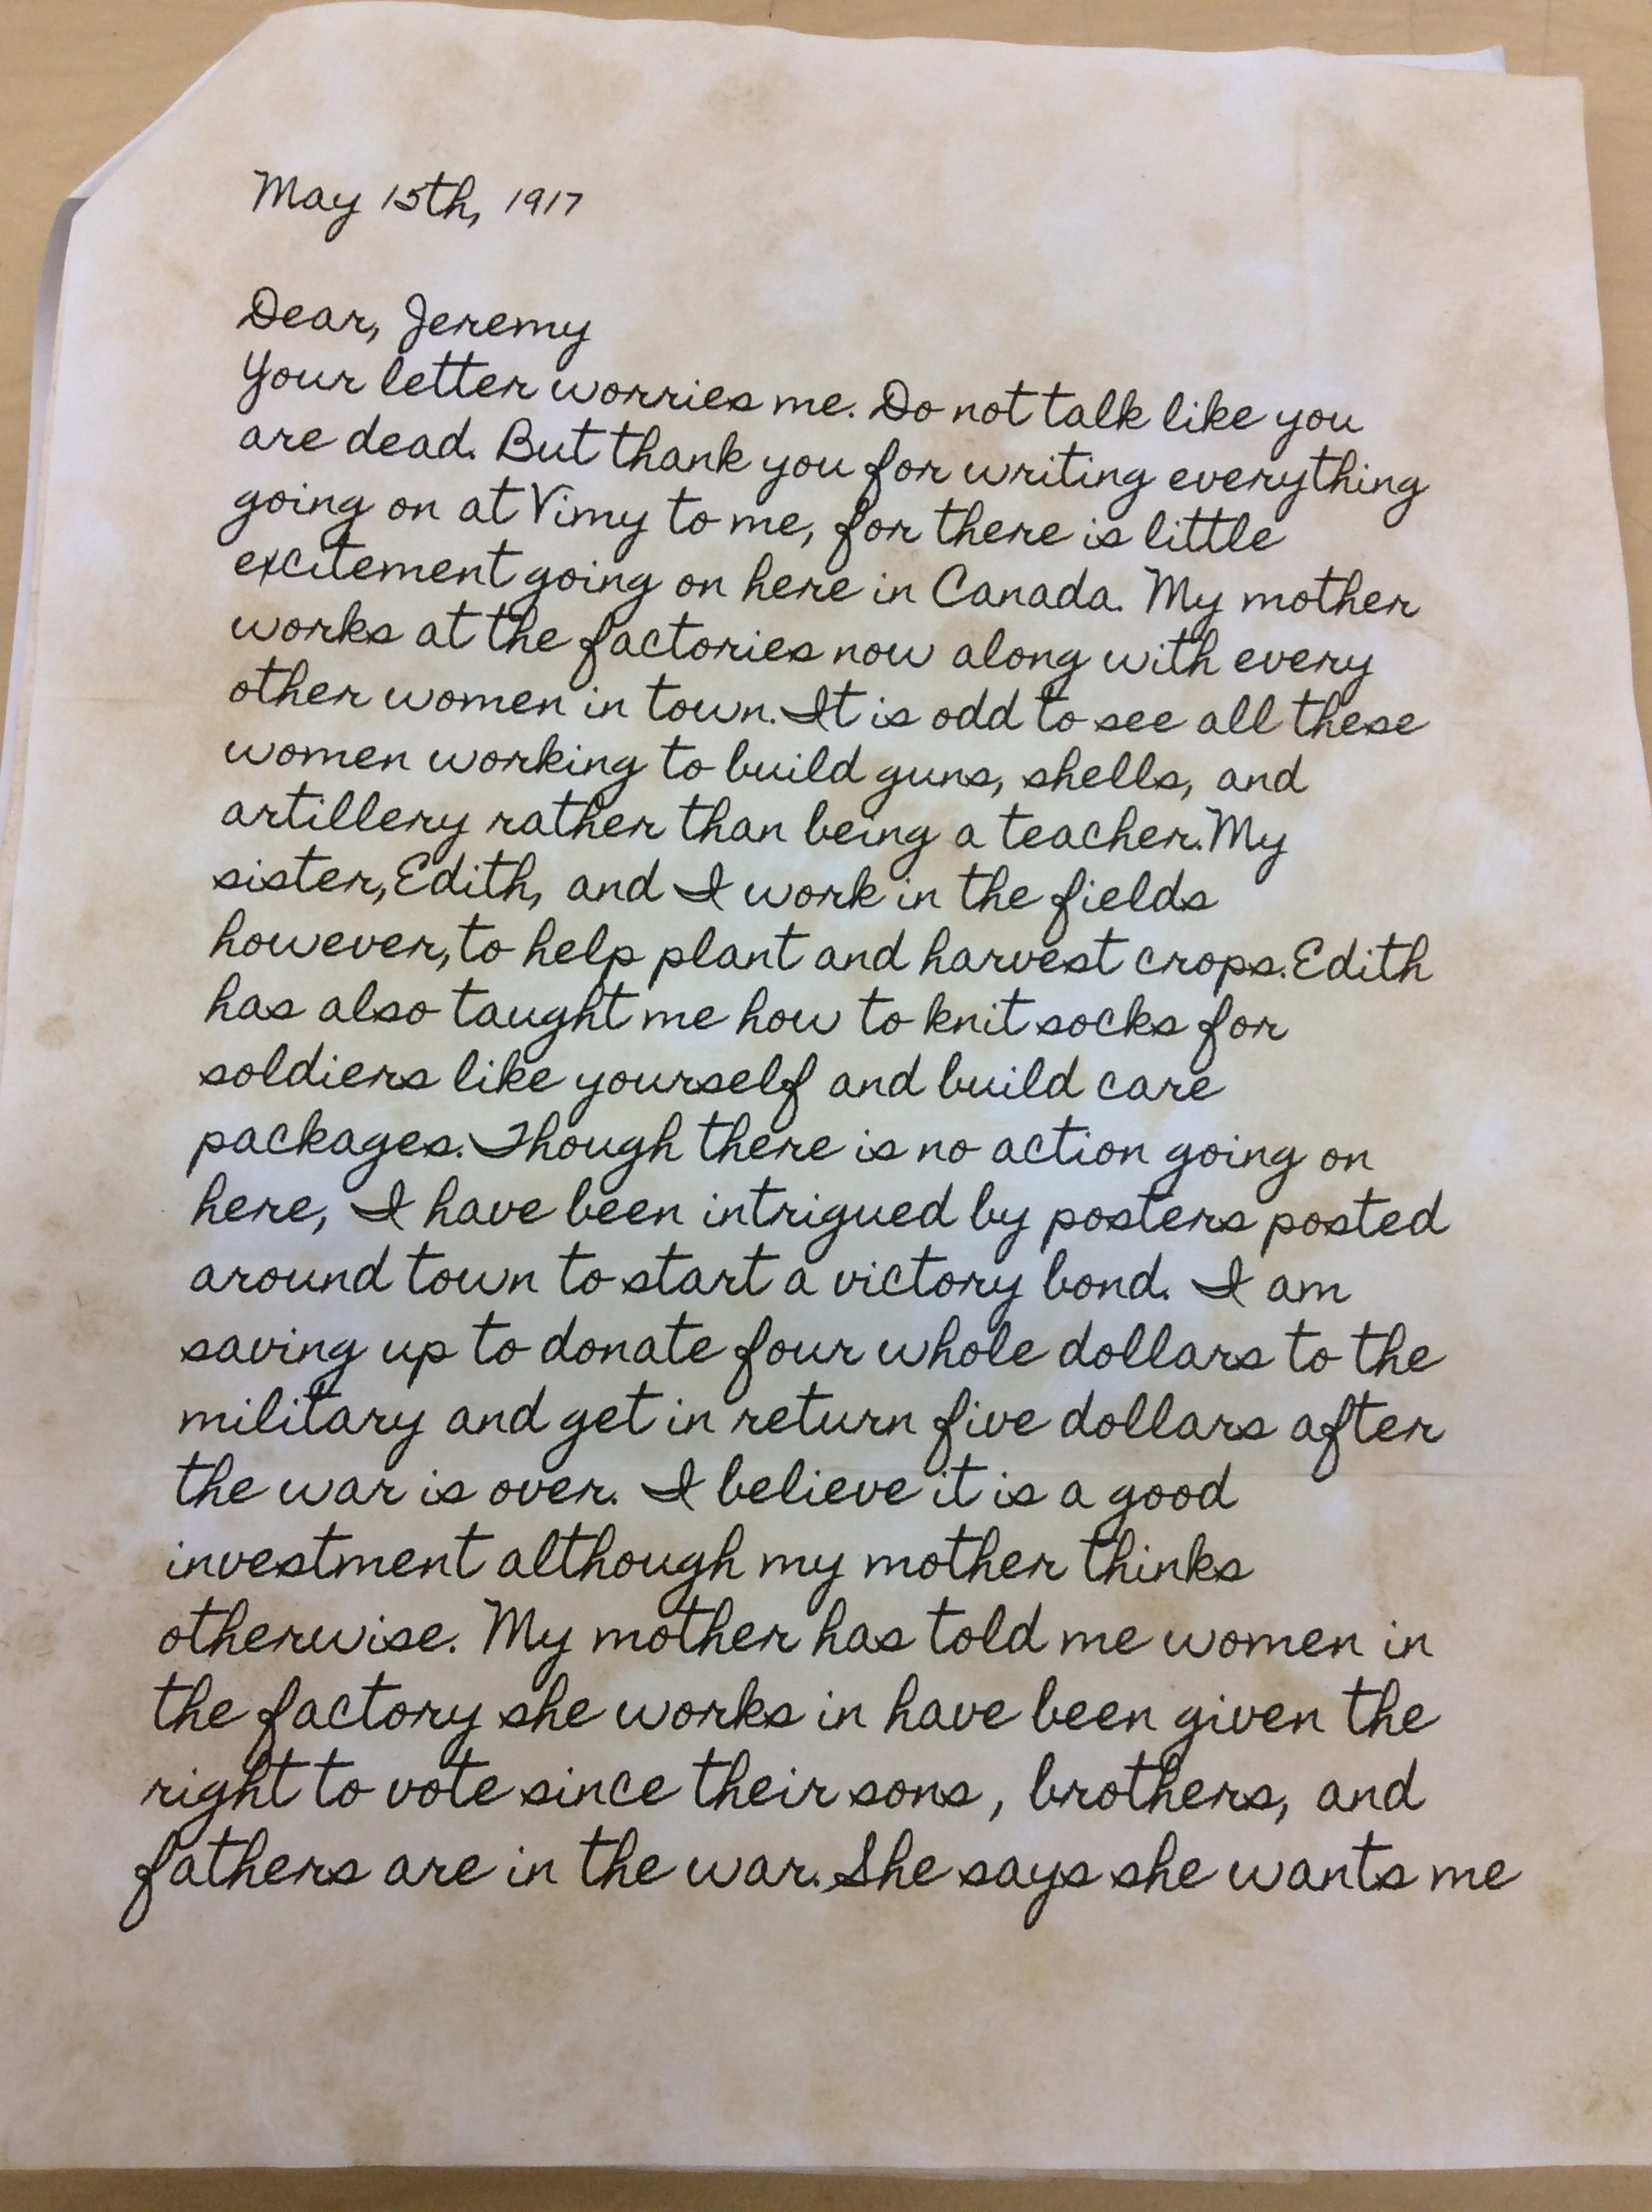 May 15th, 1917
Dear, Jeremy
Your letter worries me. Do not talk like you
are dead. But thank you for writing everything
going on at Vimy to me, for there is little
excitement going on here in Canada. My mother
works at the factories now along with every
other women in town. It is odd to see all these
women working to build guns, shells, and
artillery rather than being a teacher. My
sister, Edith, and I work in the fields
however, to help plant and harvest crops. Edith
has also taught me how to knit socks for
soldiers like yourself and build care
packages. Though there is no action going on
here, I have been intrigued by posters posted
around town to start a victory bond. I am
saving up to donate four whole dollars to the
military and get in return five dollars after
the war is over. I believe it is a good
investment although my mother thinks
otherwise. My mother has told me women in
the factory she works in have been given the
right to vote since their sons, brothers, and
fathers are in the war. She says she wants me